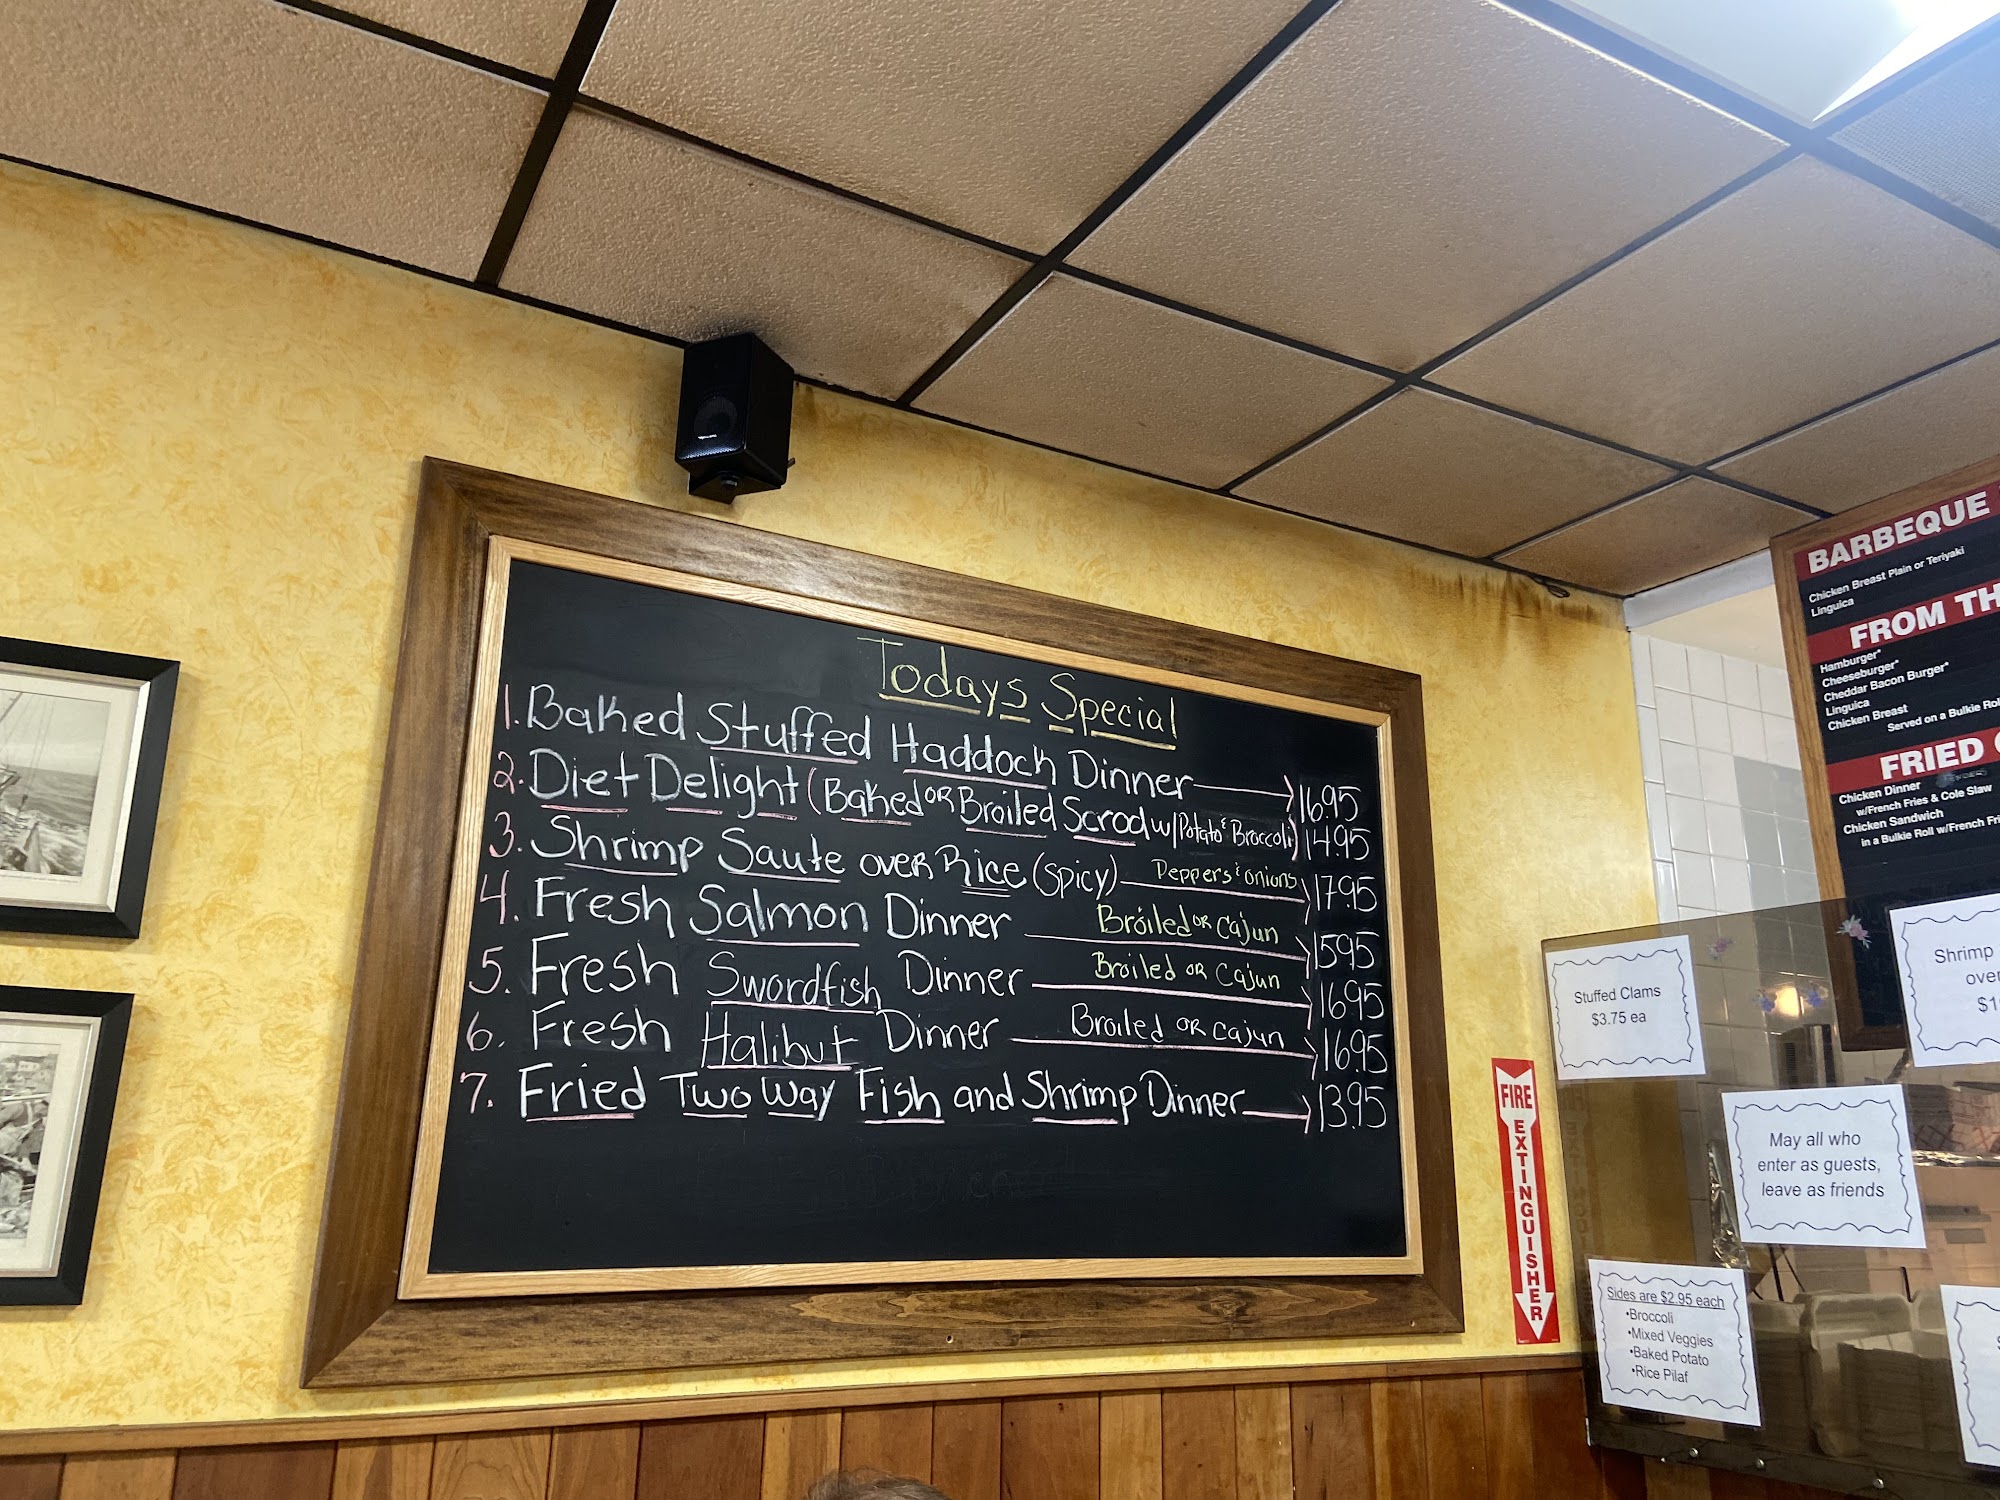 Todays Special
1. Baked Stuffed Haddock Dinner 16.95
2. Diet Delight (Baked OR Broiled Scrod w/Potato & Broccoli) 14.95
3. Shrimp Saute over Rice (Spicy) Peppers & onions 17.95
4. Fresh Salmon Dinner Broiled OR Cajun 1595
5. Fresh Swordfish Dinner Broiled OR Cajun 1695
6. Fresh Halibut Dinner Broiled OR Cajun 1695
7. Fried Two Way Fish and Shrimp Dinner 13.95
BARBEQUE
Chicken Breast Plain or Teriyaki
Linguica
FROM TH
Hamburger*
Cheeseburger*
Cheddar Bacon Burger*
Linguica
Chicken Breast
Served on a Bulkie Rol
FRIED
Chicken Dinner
w/French Fries & Cole Slaw
Chicken Sandwich
in a Bulkie Roll w/French Fri
Stuffed Clams
$3.75 ea
Shrimp
over
May all who
enter as guests,
leave as friends
FIRE
EXTINGUISHER
Sides are $2.95 each
•Broccoli
•Mixed Veggies
•Baked Potato
•Rice Pilaf